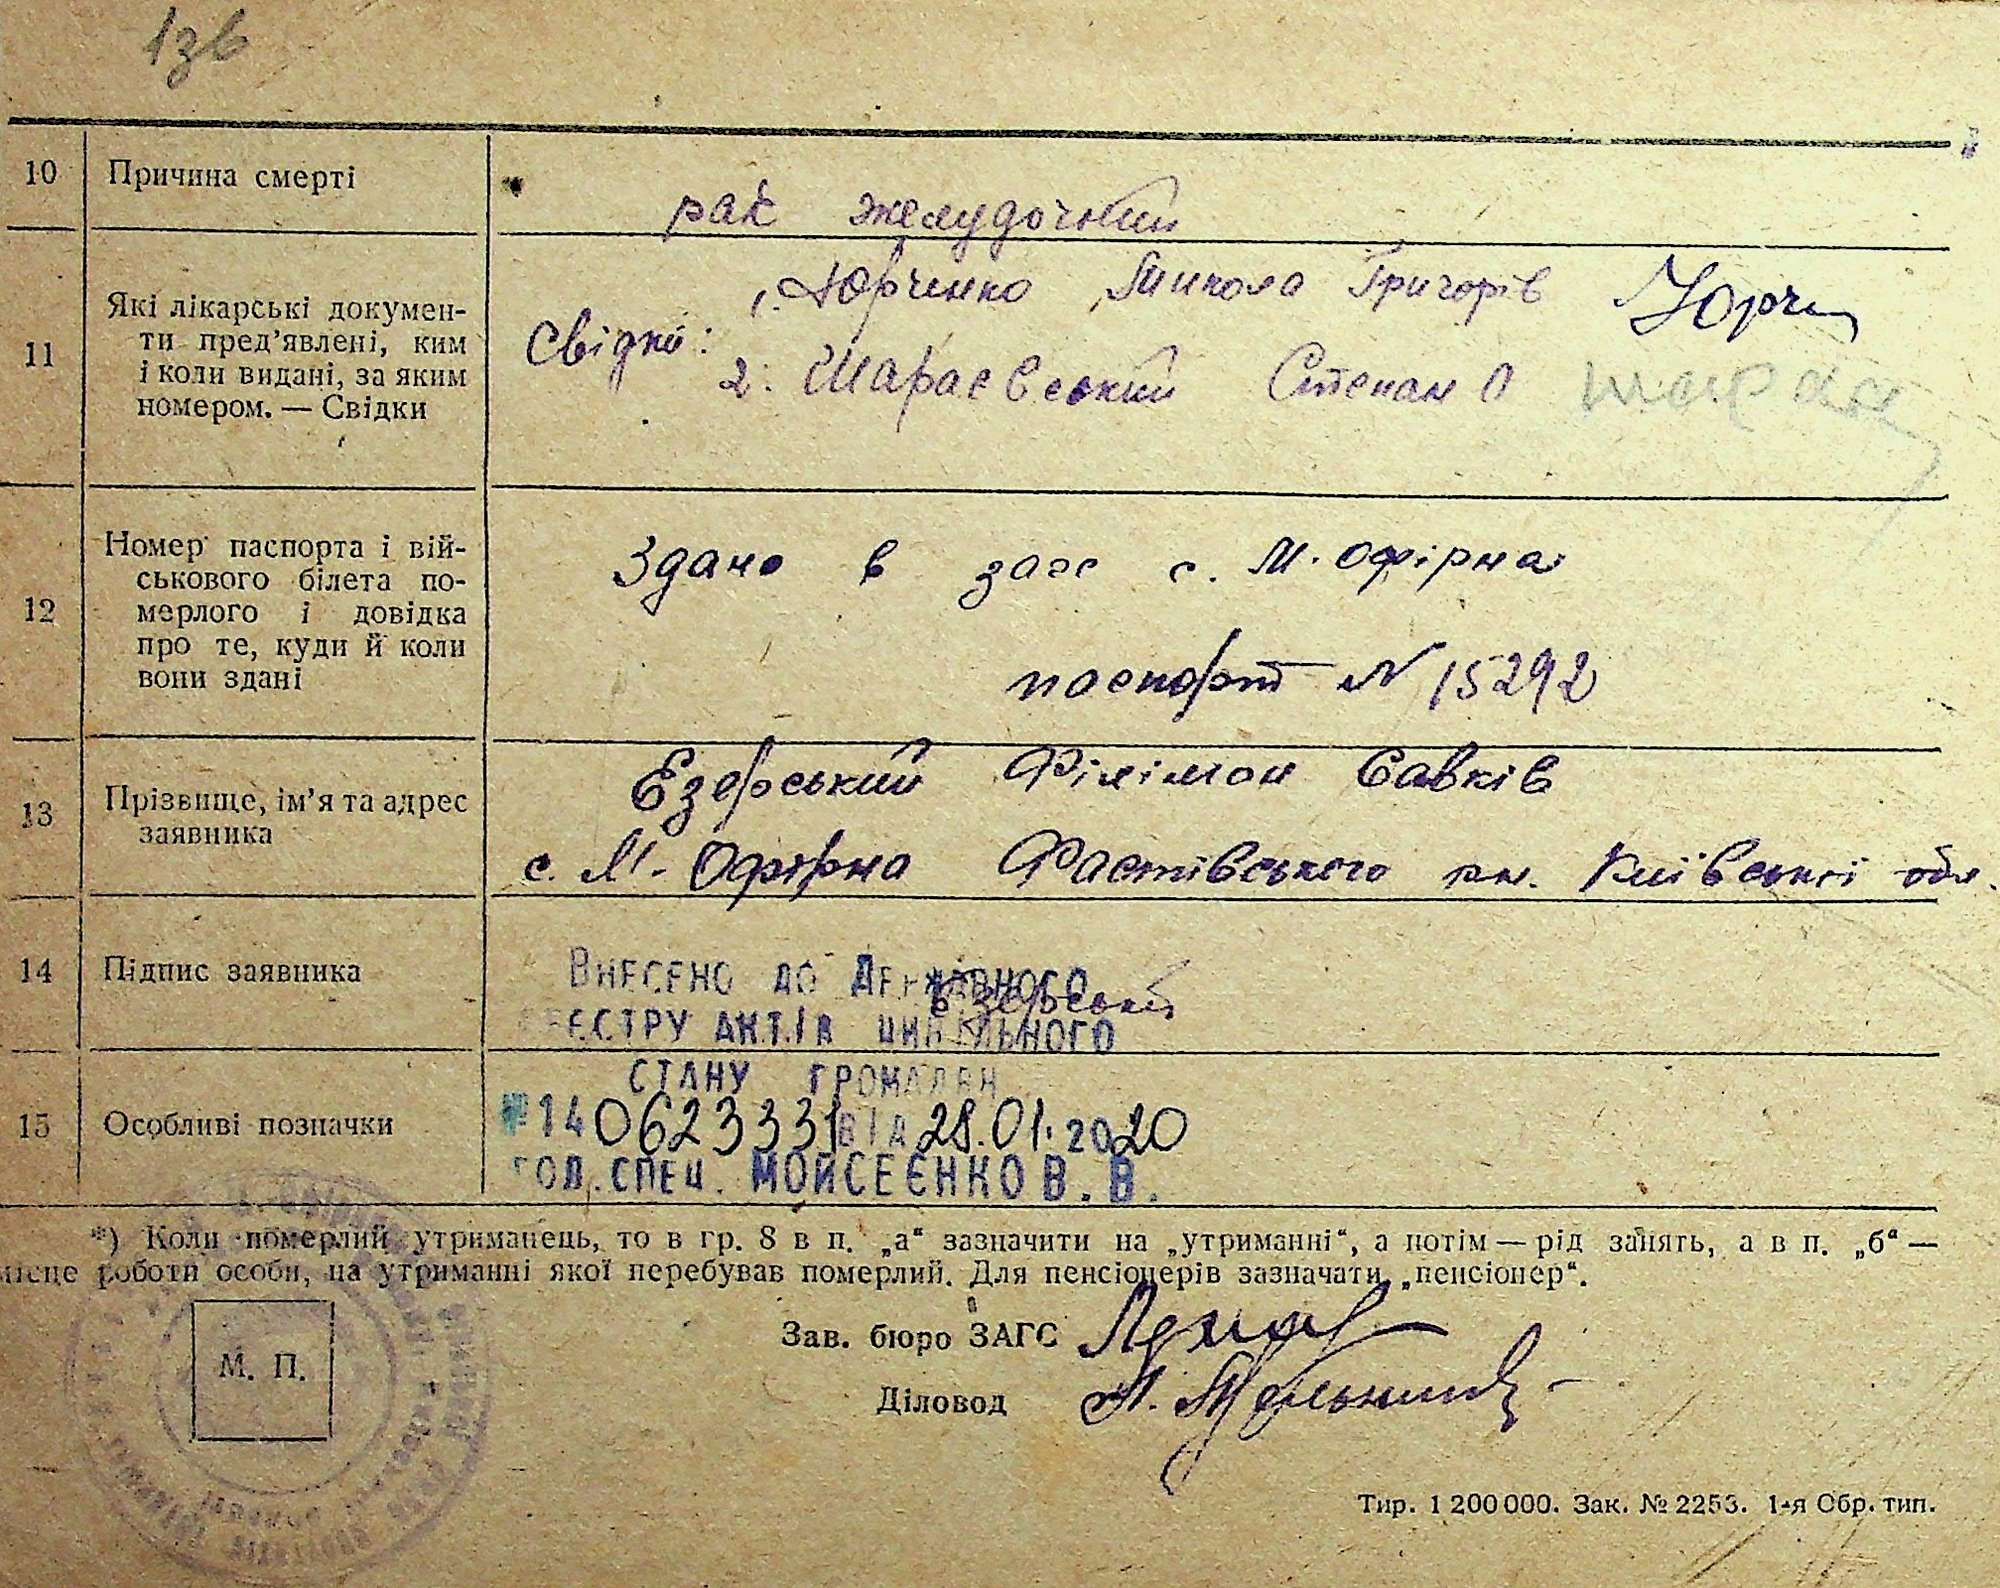 136
10 Причина смерті
рак желудочний
11 Які лікарські докумен-
ти пред’явлені, ким
і коли видані, за яким
номером. — Свідки
Свідки: 1. Юрченко Микола Григорів Юрч
2. Шараєвський Степан О Шарае
12 Номер паспорта і вій-
ськового білета по-
мерлого і довідка
про те, куди й коли
вони здані
Здано в загс с. М. Офірна
паспорт N 15292
13 Прізвище, ім’я та адрес
заявника
Езерський Філімон Савків
с. М. Офірна Фастівського рн. Київської обл.
14 Підпис заявника
Езерський
ВНЕСЕНО ДО ДЕРЖАВНОГО
РЕЄСТРУ АКТІВ ЦИВІЛЬНОГО
СТАНУ ГРОМАДЯН
15 Особливі позначки
№140623331 ВІД 28.01.2020
ГОЛ. СПЕЦ. МОЙСЕЄНКО В. В.
*) Коли померлий утриманець, то в гр. 8 в п. „а“ зазначити на „утриманні“, а потім — рід занять, а в п. „б“ —
місце роботи особи, на утриманні якої перебував померлий. Для пенсіонерів зазначати „пенсіонер“.
М. П.
Зав. бюро ЗАГС
Діловод
Тир. 1 200 000. Зак. № 2253. 1-я Обр. тип.